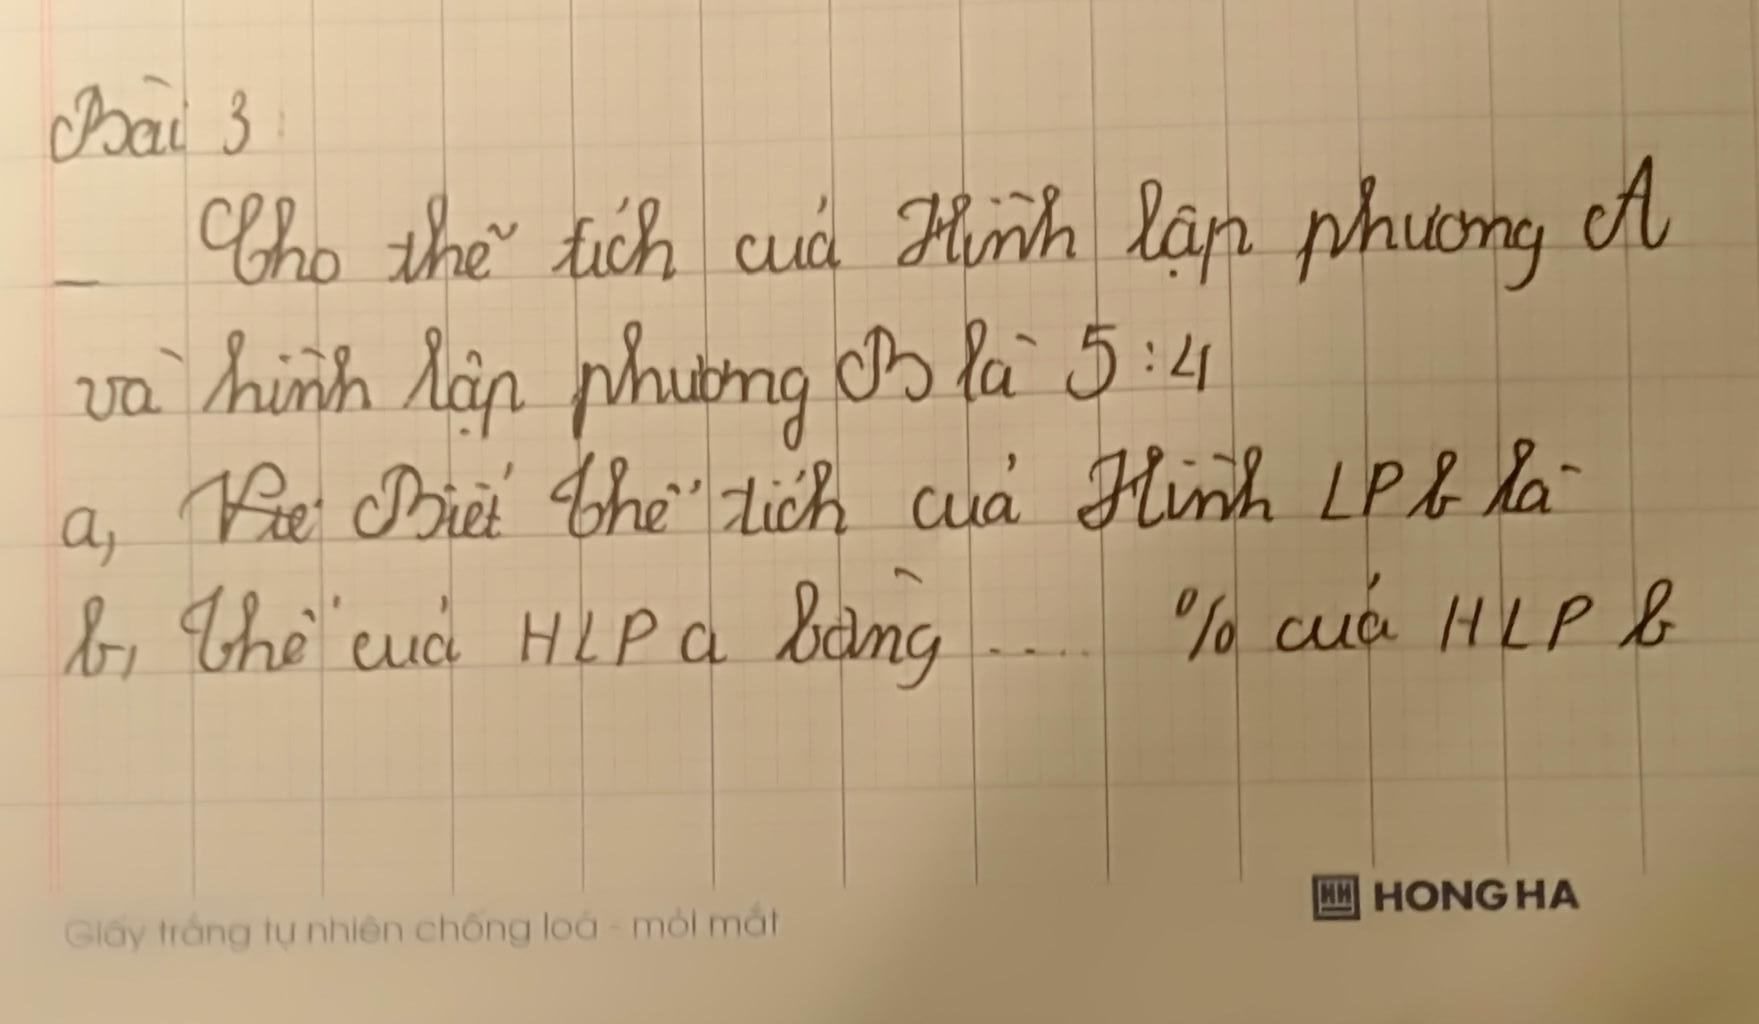 Bài 3:
Cho thể tích của Hình lập phương A
và hình lập phương B là 5:4
a, Biết thể tích của Hình LP b là
b, thể của HLP a bằng .... % của HLP b
HH HONG HA
Giấy trắng tự nhiên chống loá - mỏi mắt